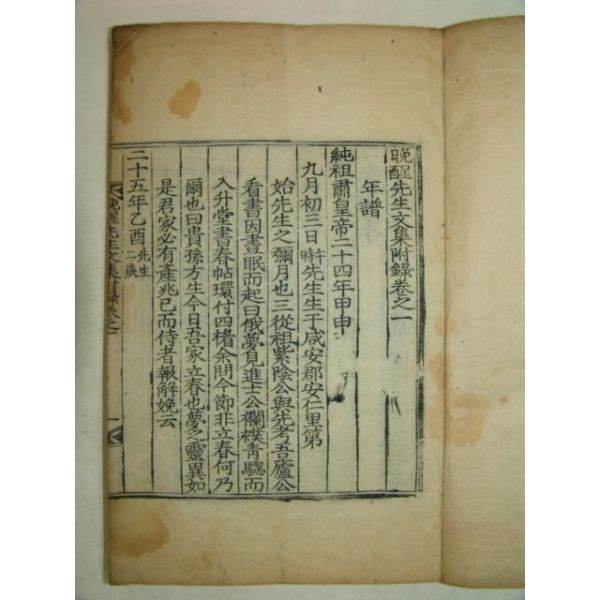 晩醒先生文集附錄卷之一
年譜
純祖肅皇帝二十四年甲申
九月初三日 時先生生于咸安郡安仁里第
始先生之彌月也三從祖紫陰公與先考吾廬公
看書因晝眠而起曰俄夢見進士公襴襆靑驄而
入升堂書春帖環付四楣余問今節非立春何乃
爾也曰貴孫方生今日吾家立春也夢之靈異如
是君家必有產兆已而侍者報解娩云
二十五年乙酉 先生二歲
晩醒先生文集附錄卷之一
一